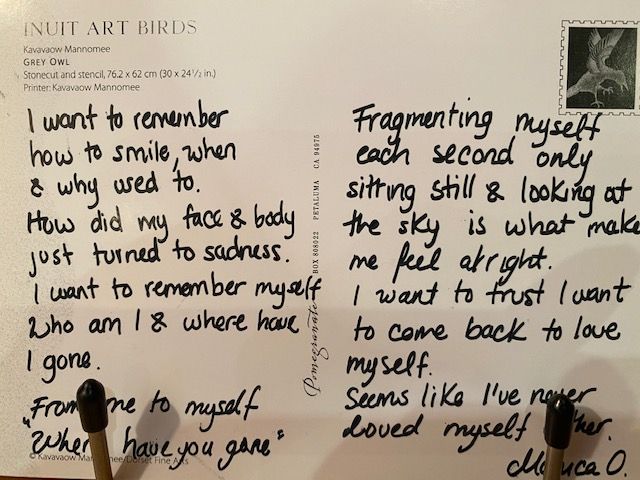 INUIT ART BIRDS
Kavavaow Mannomee
GREY OWL
Stonecut and stencil, 76.2 x 62 cm (30 x 24½ in.)
Printer: Kavavaow Mannomee
I want to remember
how to smile, when
& why used to.
How did my face & body
just turned to sadness.
I want to remember myself
Who am I & where have
I gone.
"From me to myself
Where have you gone"
© Kavavaow Mannomee/Dorset Fine Arts
Pomegranate BOX 808022 PETALUMA CA 94975
Fragmenting myself
each second only
sitting still & looking at
the sky is what make
me feel alright.
I want to trust I want
to come back to love
myself.
Seems like I've never
loved myself
Monica O.